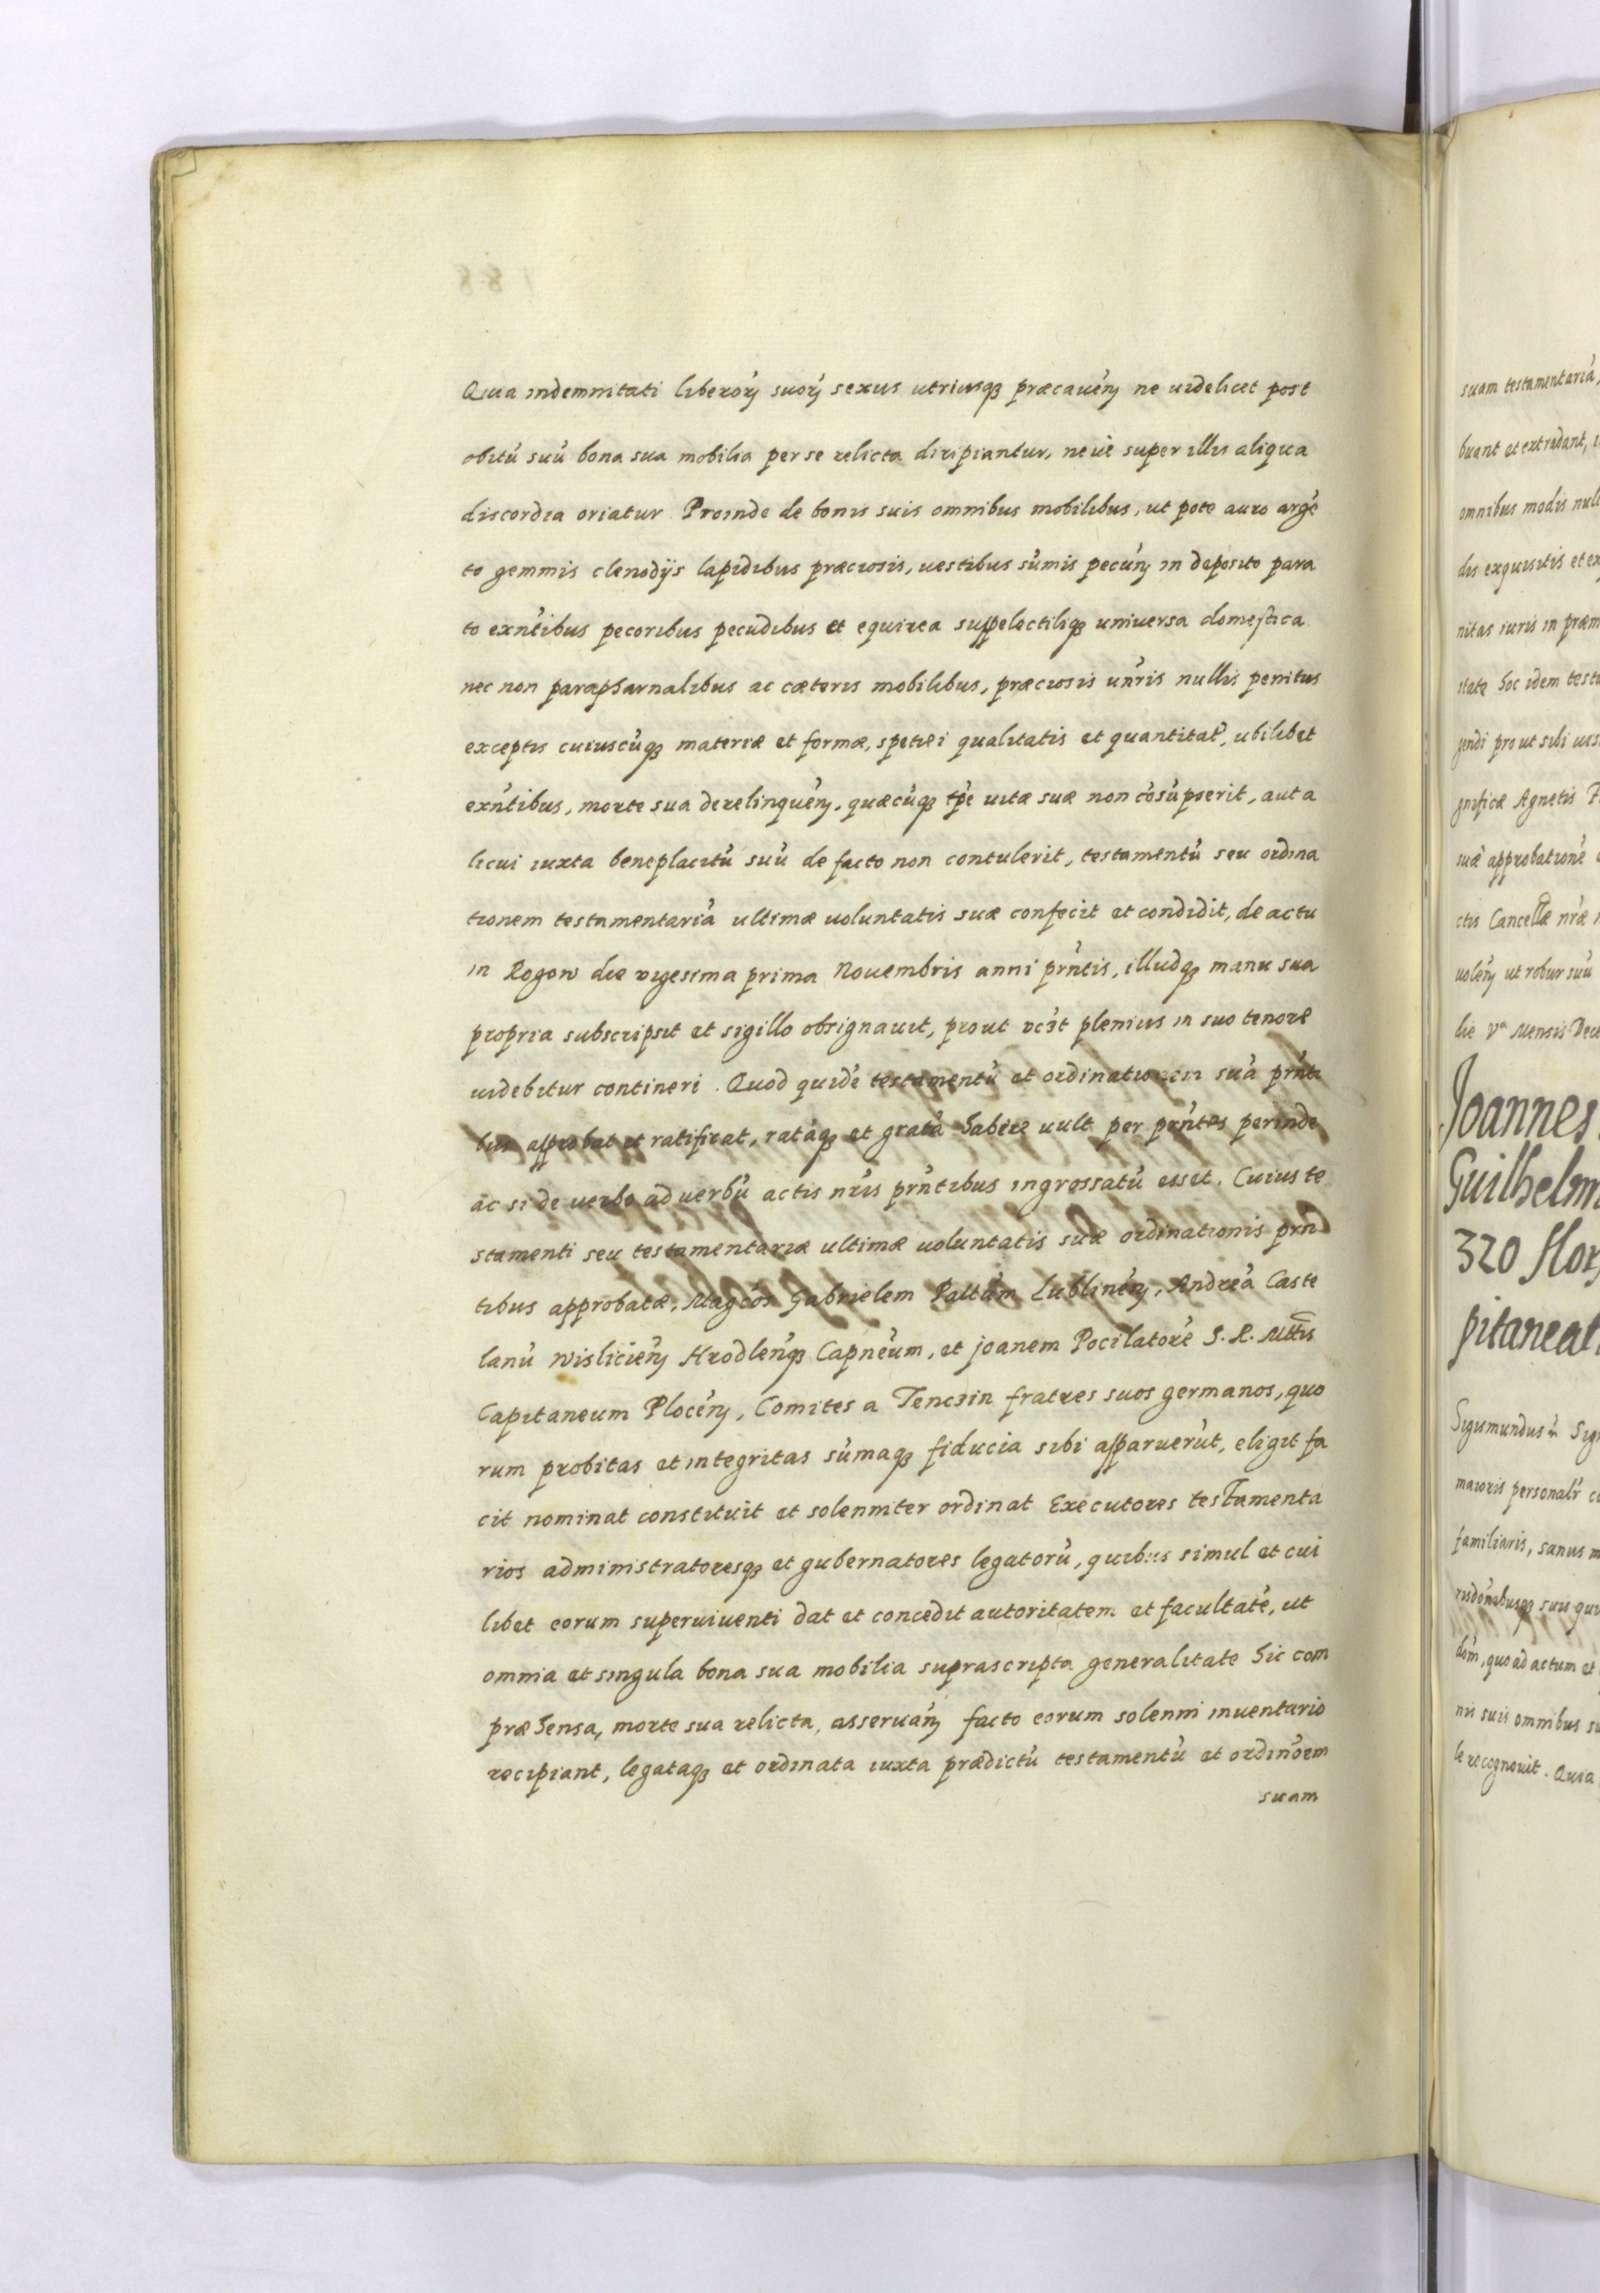 Quia indemnitati liberoꝝ suoꝝ sexus utriusqꝫ præcaueñ ne uidelicet post
obitũ suũ bona sua mobilia per se relicta diripiantur, neue super illis aliqua
discordia oriatur Proinde de bonis suis omnibus mobilibus, ut pote auro argẽ
to gemmis clenodijs lapidibus præciosis, uestibus sũmis pecuñ in deposito para
to exñtibus pecoribus pecudibus et equirea suppelectiliqꝫ uniuersa domestica
nec non parapharnalibus ac cæteris mobilibus, præciosis uñris nullis penitus
exceptis cuiuscũqꝫ materiæ et formæ, spetiei qualitatis et quantitat̃, ubilibet
exñtibus, morte sua derelinqueñ, quæcũqꝫ tp̃e uitæ suæ non cõsũpserit, aut a
licui iuxta beneplacitũ suũ de facto non contulerit, testamentũ seu ordina
tionem testamentariã ultimæ uoluntatis suæ confecit et condidit, de actu
in Rogow die vigesima prima Nouembris anni prñtis, illudqꝫ manu sua
propria subscripsit et sigillo obsignauit, prout plenius in suo tenore
uidebitur contineri. Quod quidẽ testamentũ et ordinationem suã prñti
bus approbat et ratificat, ratãqꝫ et gratã habere uult per prñtes perinde
ac si de uerbo ad uerbũ actis nr̃is prñtibus ingrossatũ esset. Cuius te
stamenti seu testamentariæ ultimæ uoluntatis suæ ordinationis prñ
tibus approbatæ, Magcos Gabrielem Palltũm Lublineñ, Andreã Caste
lanũ Wislicieñ Hrodleñqꝫ Capneum, et Joanem Pocilatorẽ S. R. Mttis
Capitaneum Ploceñ, Comites a Tenczin fratres suos germanos, quo
rum probitas et integritas sũmaqꝫ fiducia sibi apparuerũt, eligit fa
cit nominat constituit et solenniter ordinat Executores testamenta
rios administratoresqꝫ et gubernatores legatorũ, quibus simul et cui
libet eorum superuiuenti dat et concedit autoritatem et facultatẽ, ut
omnia et singula bona sua mobilia suprascripta generalitate hic com
præhensa, morte sua relicta, asseruañ facto eorum solenni inuentario
recipiant, legataqꝫ et ordinata iuxta prædictũ testamentũ et ordinõem
suam
suam testamentariã,
buant et extradant,
omnibus modis
dis exquisitis et
nitas iuris in
state hoc idem
prout sibi
Agnetis
suæ approbationẽ
ctis Cancellæ nr̃æ
uoleñ ut robur suũ
die Vᵃ Mensis
Joannes
320 flor
pitaneat
Sigismundus
maioris personalr̃
familiaris, sanus
suis
quo ad actum et
nis suis omnibus
le recognouit. Quia